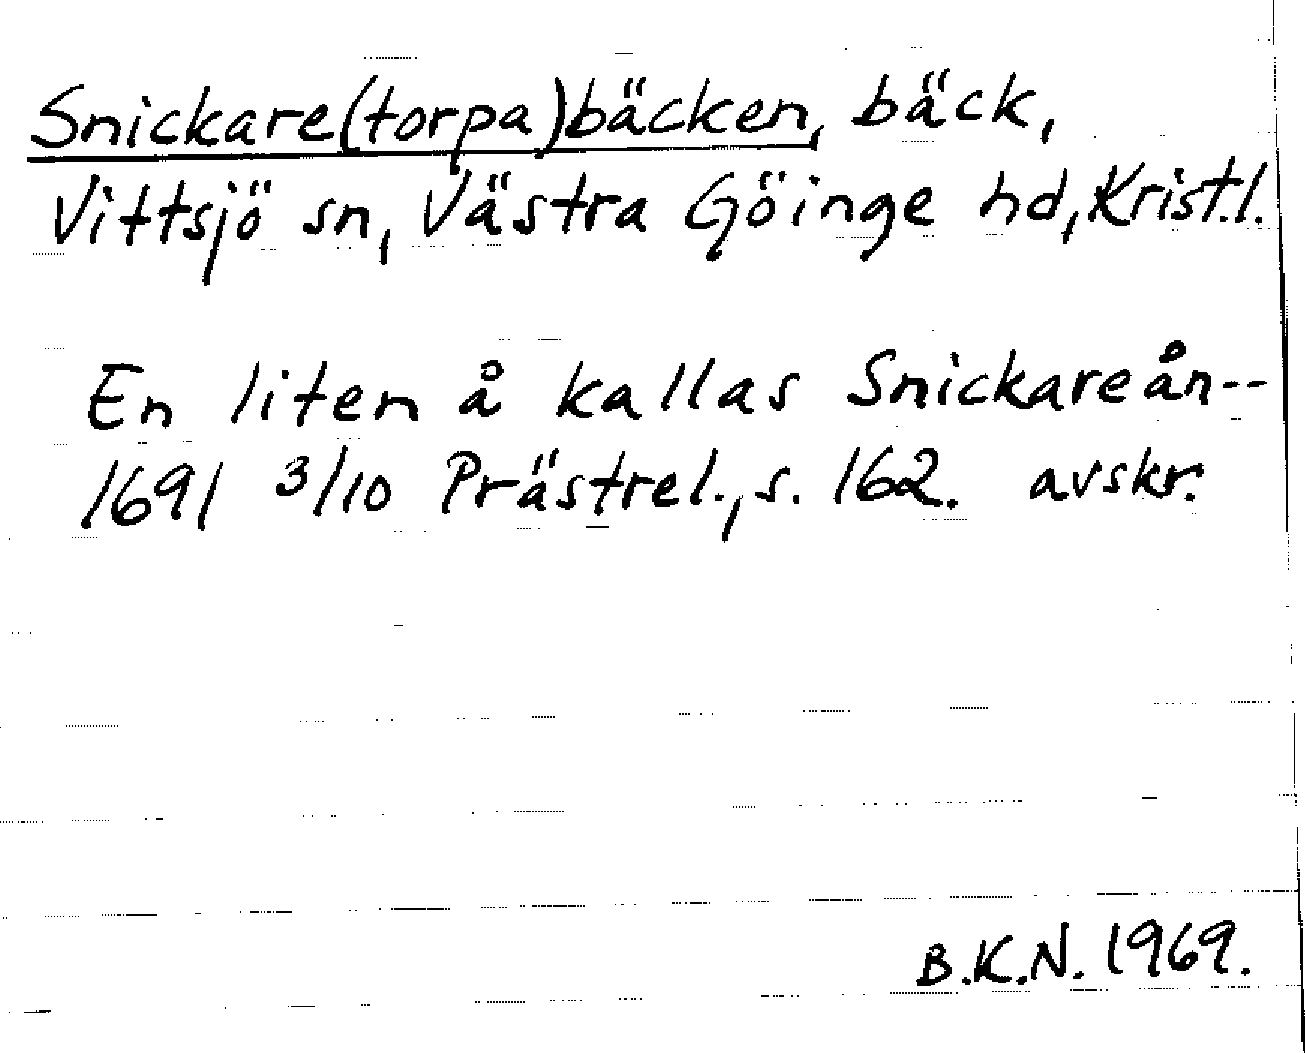 Snickare(torpa)bäcken, bäck,
Vittsjö sn, Västra Göinge hd, Krist.l.
En liten å kallas Snickareån--
1691 3/10 Prästrel., s. 162. avskr.
B.K.N. 1969.